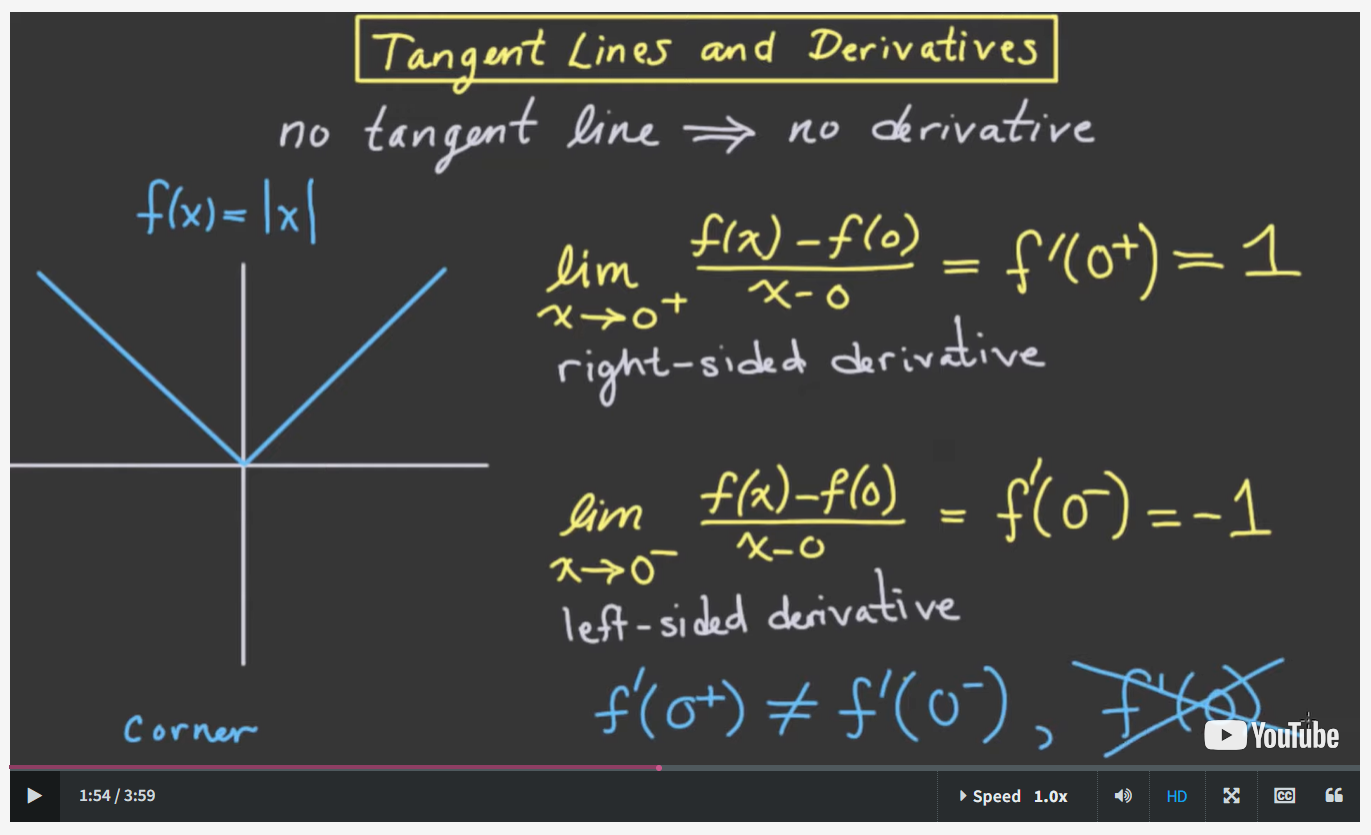 Tangent Lines and Derivatives
no tangent line ⟹ no derivative
f(x) = |x|
lim x→0⁺ (f(x) – f(0))/(x – 0) = f'(0⁺) = 1
right-sided derivative
lim x→0⁻ (f(x) – f(0))/(x – 0) = f'(0⁻) = –1
left-sided derivative
f'(0⁺) ≠ f'(0⁻), f'(0)
Corner
YouTube
1:54 / 3:59
Speed 1.0x
HD
CC